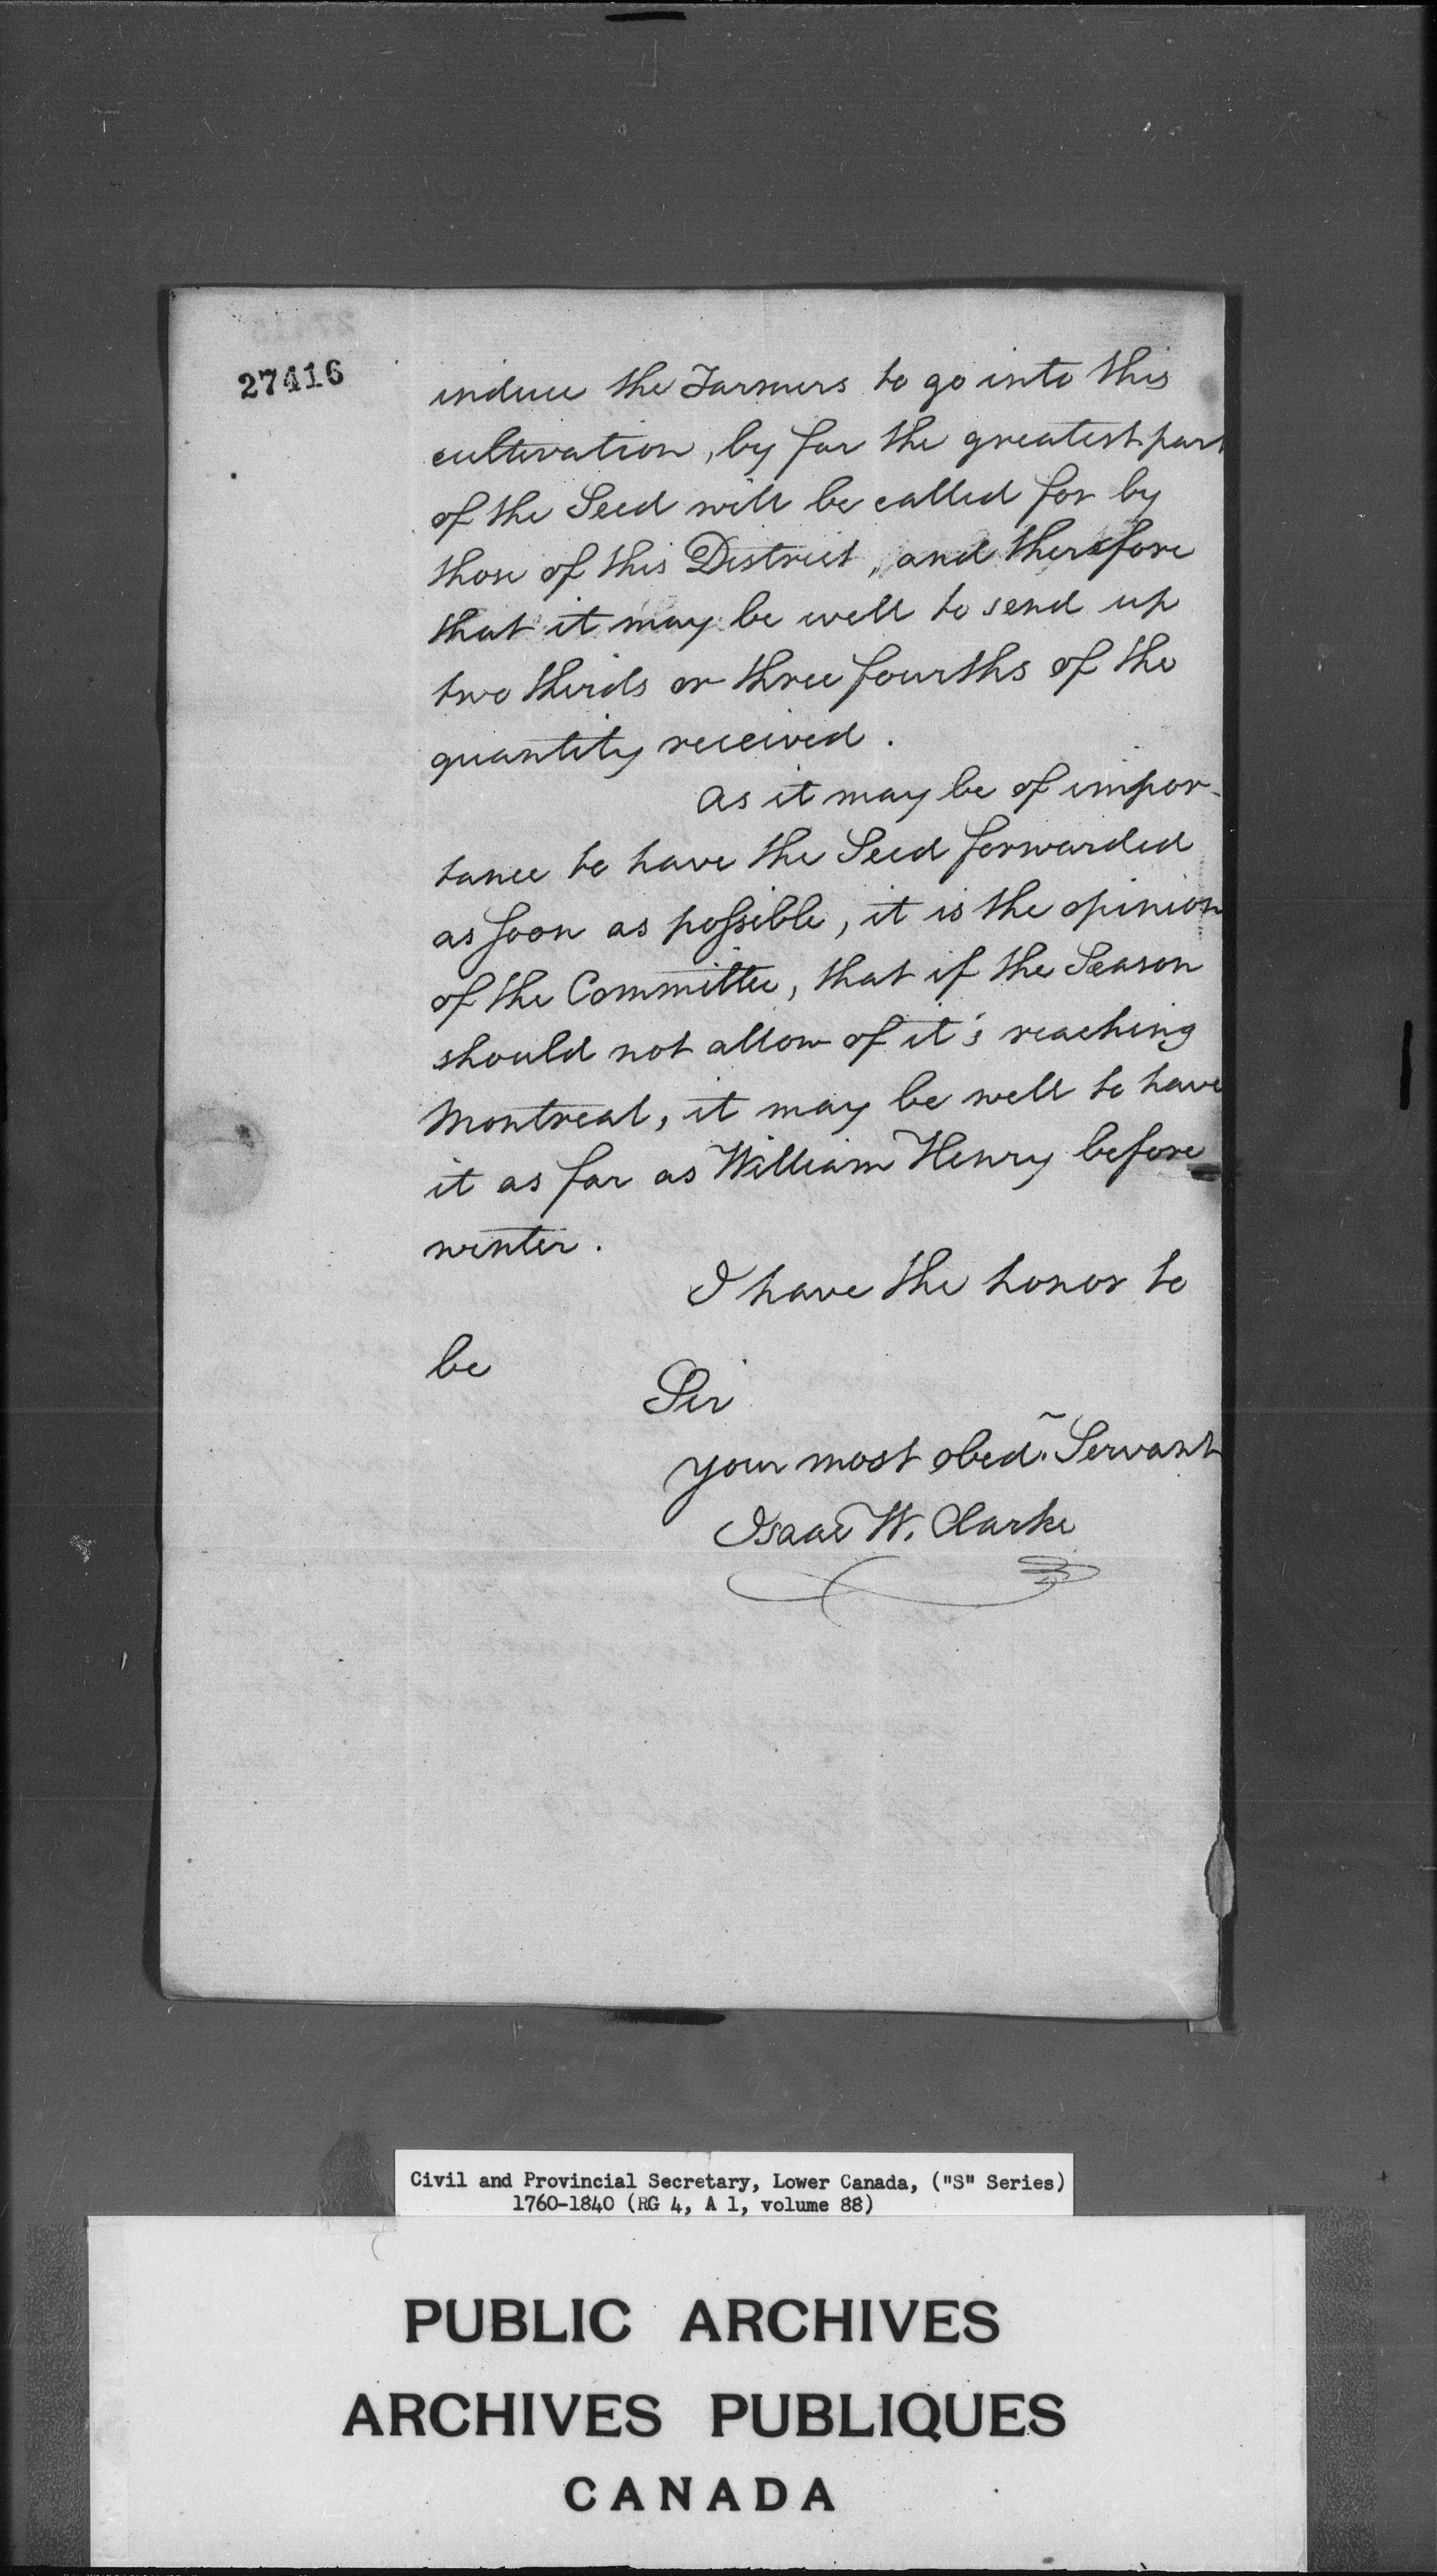 27416
induce the Farmers to go into this
cultivation, by far the greatest part
of the Seed will be called for by
those of this District, and therefore
that it may be well to send up
two thirds or three fourths of the
quantity received.
As it may be of impor-
tance to have the Seed forwarded
as soon as possible, it is the opinion
of the Committee, that if the Season
should not allow of it's reaching
Montreal, it may be well to have
it as far as William Henry before
winter.
I have the honor to
be
Sir
your most obed. Servant
Isaac W. Clarke
Civil and Provincial Secretary, Lower Canada, ("S" Series)
1760-1840 (RG 4, A 1, volume 88)
PUBLIC ARCHIVES
ARCHIVES PUBLIQUES
CANADA